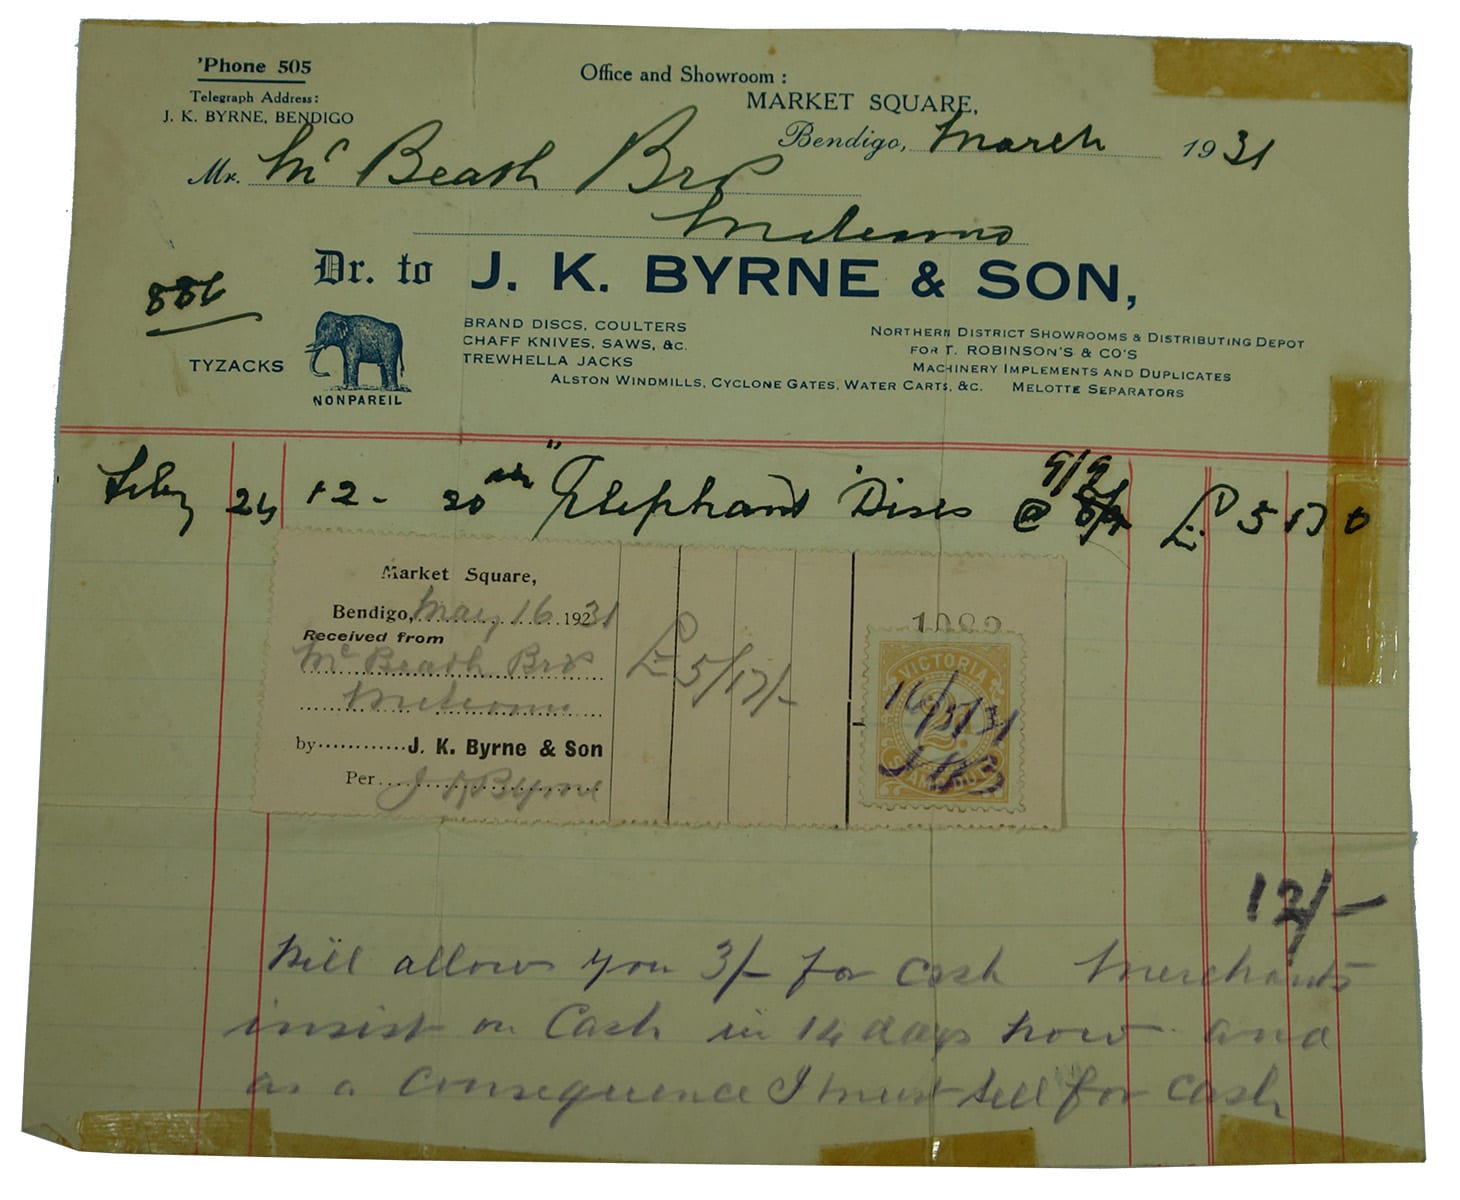 'Phone 505
Telegraph Address:
J. K. BYRNE, BENDIGO
Office and Showroom:
MARKET SQUARE,
Bendigo, March 1931
Mr. Mc Beath Bros
Dr. to J. K. BYRNE & SON,
886
TYZACKS
NONPAREIL
BRAND DISCS, COULTERS
CHAFF KNIVES, SAWS, &C.
TREWHELLA JACKS
NORTHERN DISTRICT SHOWROOMS & DISTRIBUTING DEPOT
FOR T. ROBINSON'S & CO'S
MACHINERY IMPLEMENTS AND DUPLICATES
ALSTON WINDMILLS, CYCLONE GATES, WATER CARTS, &C. MELOTTE SEPARATORS
9/9
24 12 - 20 "Elephant" Discs @ £ 5 17 0
Market Square,
Bendigo, May 16 1931
Received from
Mc Beath Bros
£5/17/-
by J. K. Byrne & Son
Per J K Byrne
VICTORIA
16/5/31
2D
JKB
STAMP DUTY
12/-
Will allow you 3/- for cash Merchants
insist on Cash in 14 days now and
as a consequence I must sell for cash